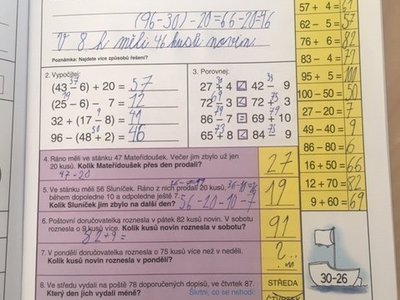 (96-30)-20=66-20=46
V 8 h měli 46 kusů novin.
Poznámka: Najdete více způsobů řešení?
2. Vypočítej:
(43 - 6) + 20 = 57
(25 - 6) - 7 = 12
32 + (17 - 8) = 41
96 - (48 + 2) = 46
3. Porovnej:
27 + 4 42 - 9
72 - 3 72 + 3
86 - 7 69 + 10
65 + 8 84 - 9
4. Ráno měli ve stánku 47 Mateřídoušek. Večer jim zbylo už jen
20 kusů. Kolik Mateřídoušek přes den prodali?
47-20
27
5. Ve stánku měli 56 Sluníček. Ráno z nich prodali 20 kusů,
během dopoledne 10 a odpoledne ještě 7.
Kolik Sluníček jim zbylo na další den?
56-20-10-7
19
6. Poštovní doručovatelka roznesla v pátek 82 kusů novin. V sobotu
roznesla o 9 kusů více. Kolik kusů novin roznesla v sobotu?
82+9=
91
7. V pondělí roznesla o 75 kusů více než v neděli.
Kolik kusů novin roznesla v pondělí?
?
8. Ve středu vydali na poště 78 doporučených dopisů, ve čtvrtek 87.
Který den jich vydali méně? Škrtni, co se nehodí:
STŘEDA
ČTVRTEK
57 + 4 = 61
62 - 5 = 57
76 + 6 = 82
77 - 4 = 73
95 + 5 = 100
100 - 50 = 50
27 - 20 = 7
49 - 40 = 9
86 - 6 = 80
16 + 50 = 66
12 + 70 = 82
9 + 60 = 69
30-26